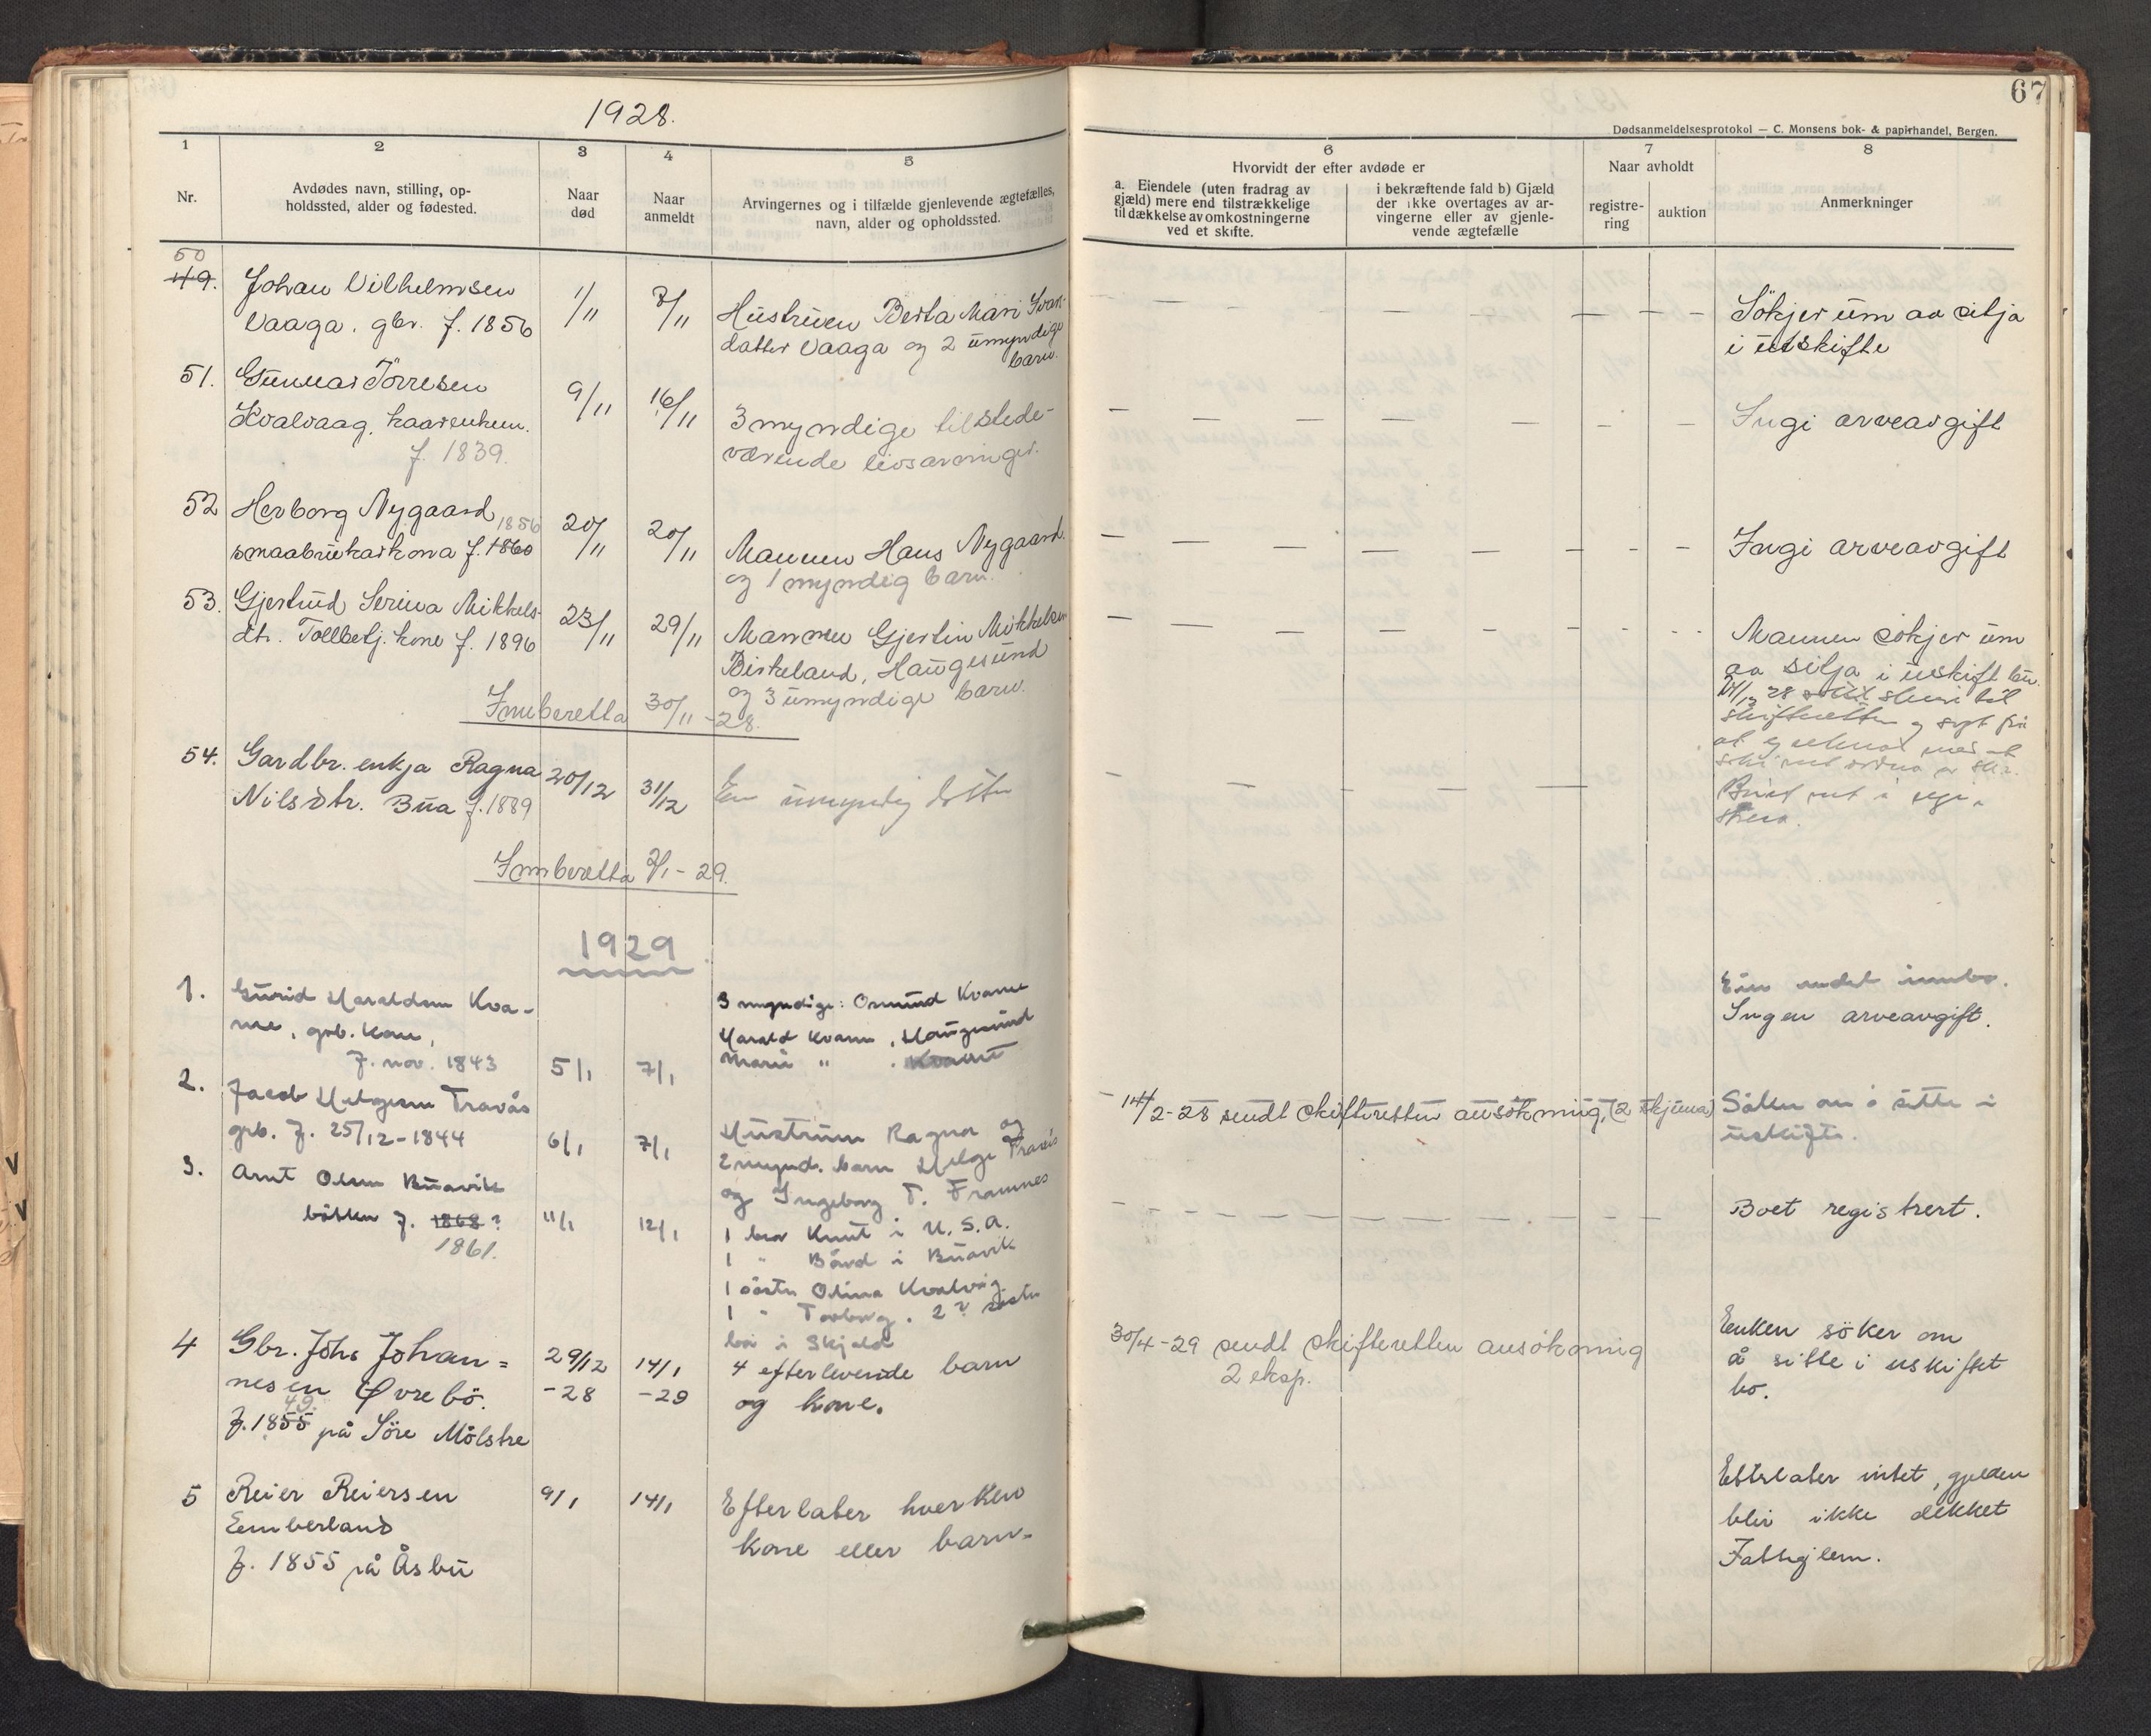 1928.
67
Dødsanmeldelsesprotokol — C. Monsens bok- & papirhandel, Bergen.
1
2
3
4
5
6
7
8
Nr.
Avdødes navn, stilling, op-
holdssted, alder og fødested.
Naar
død
Naar
anmeldt
Arvingernes og i tilfælde gjenlevende ægtefælles,
navn, alder og opholdssted.
Hvorvidt der efter avdøde er
a. Eiendele (uten fradrag av
gjæld) mere end tilstrækkelige
til dækkelse av omkostningerne
ved et skifte.
i bekræftende fald b) Gjæld
der ikke overtages av ar-
vingerne eller av gjenle-
vende ægtefælle
Naar avholdt
registre-
ring
auktion
Anmerkninger
50
49.
Johan Vilhelmsen
Vaaga. gbr. f. 1856
1/11
7/11
Hustruen Berta Mari Svan-
datter Vaaga og 2 umyndige
barn.
Søkjer um aa sitja
i uskifte
51.
Gunnar Törresen
Kvalvaag, kaarenkem.
f. 1839.
9/11
16/11
3 myndige tilstede-
værende livsarvinger.
Ingi arveavgift
52
Herborg Nygaard 1856
smaabrukarkona f. 1860
20/11
20/11
Mannen Hans Nygaard.
og 1 myndig barn.
Ingi arveavgift
53.
Gjertrud Serina Mikkels-
dtr. Tollbetj. kone f. 1896
23/11
29/11
Mannen Gjertin Mikkelsen
Birkeland, Haugesund
og 3 umyndige barn.
Mannen søkjer um
aa sitja i uskift bu.
Innberetta 30/11-28.
54.
Gardbr. enkja Ragna
Nilsdtr. Bua f. 1889
20/12
31/12
En umyndig dotter
Innberetta 2/1-29.
1929
1.
Gurid Haraldsen Kva-
me, grb. kone,
f. nov. 1843
5/1
7/1
3 myndige: Osmund Kvame
Harald Kvame, Haugesund
Marie " . Kvame
Ingen arveavgift.
2.
Jacob Helgesen Travås
grb. f. 25/12-1844
6/1
7/1
Hustruen Ragna og
2 mynd. barn Helge Travås
og Ingeborg T. Framnes
14/2-28 sendt skifteretten ansökning, (2 skjema)
Söker om å sitte i
uskifte.
3.
Arnt Olsen Buavik
bökker f. 1868?
1861.
11/1
12/1
1 bror Knut i U.S.A.
1 " Bård i Buavik
1 söster Olina Kvalvåg
1 " Torborg. 2? söster
bor i Skjold
Boet registrert.
4
Gbr. Johs Johan=
nesen Øvrebö.
49.
f. 1855 på Söre Mölstre
29/12
-28
14/1
-29
4 efterlevende barn
og kone.
30/4-29 sendt skifteretten ansökning
2 eksp.
Enken söker om
å sitte i uskiftet
bo.
5
Reier Reiersen
Emberland
f. 1855 på Åsbu
9/1
14/1
Efterlater hverken
kone eller barn.
Etterlater intet, gjelden
blir ikke dekket
Fattiglem.